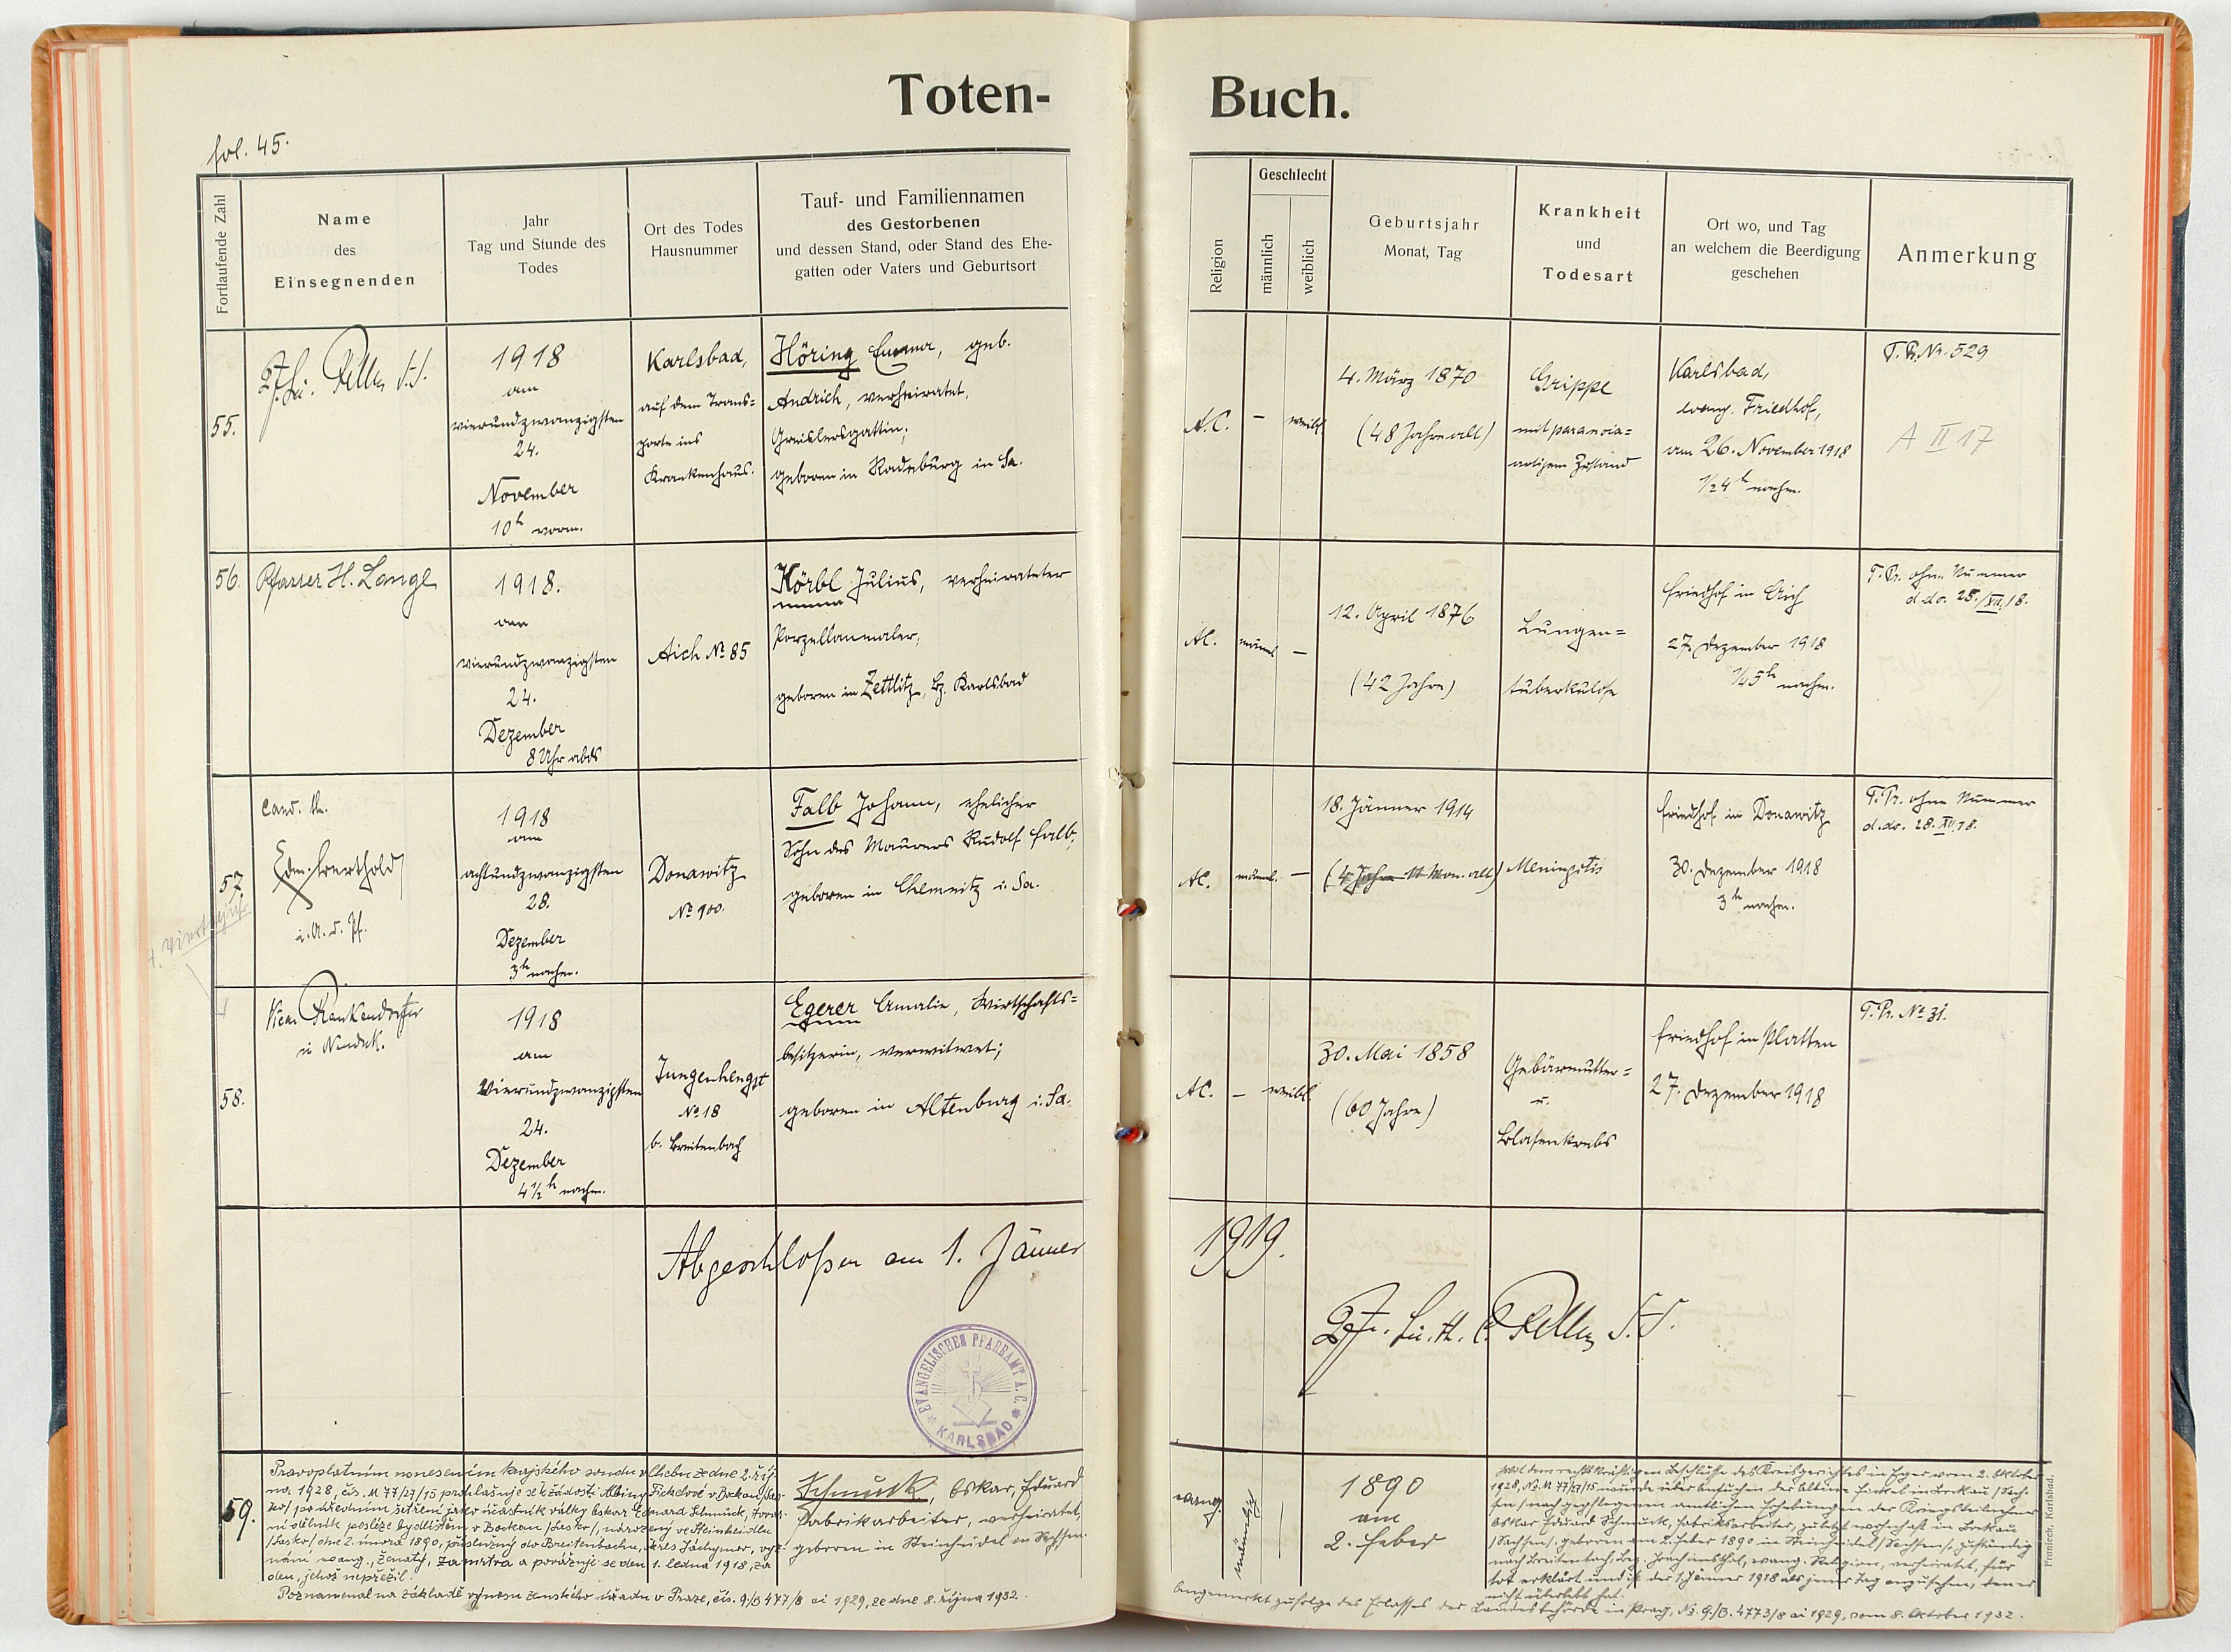 Toten-
Buch.
fol. 45.
Fortlaufende Zahl
Name
des
Einsegnenden
Jahr
Tag und Stunde des
Todes
Ort des Todes
Hausnummer
Tauf- und Familiennamen
des Gestorbenen
und dessen Stand, oder Stand des Ehe-
gatten oder Vaters und Geburtsort
Religion
Geschlecht
männlich
weiblich
Geburtsjahr
Monat, Tag
Krankheit
und
Todesart
Ort wo, und Tag
an welchem die Beerdigung
geschehen
Anmerkung
55.
1918
am
vierundzwanzigsten
24.
November
10h vorm.
Karlsbad,
auf dem Trans=
porte ins
Krankenhaus.
Höring Emma, geb.
Andrich, verheiratet,
Greislersgattin;
geboren in Radeburg in Sa.
A.C.
–
weibl.
4. März 1870
(48 Jahre alt)
Grippe
mit paranoia=
artigem Zustand
Karlsbad,
evang. Friedhof,
am 26. November 1918
1/2 4h nachm.
T. Pr. Nr. 529
A II 17
56.
Pfarrer H. Lange
1918.
am
vierundzwanzigsten
24.
Dezember
8 Uhr abds
Aich No 85
Körbl Julius, verheirateter
Porzellanmaler,
geboren in Zettlitz, Bz. Karlsbad
AC.
männl
–
12. April 1876
(42 Jahre)
Lungen=
tuberkulose
Friedhof in Aich
27. Dezember 1918
1/4 5h nachm.
T. Pr. ohne Nummer
d. do. 25./XII.18.
57.
cand. th.
i. A. d. Pf.
1918
am
achtundzwanzigsten
28.
Dezember
3h nachm.
Donawitz
No 900.
Falb Johann, ehelicher
Sohn des Maurers Rudolf Falb,
geboren in Chemnitz i. Sa.
AC.
männl.
–
18. Jänner 1914
(4 Jahre 11 Mon. alt)
Meningitis
Friedhof in Donawitz
30. Dezember 1918
3h nachm.
T. Pr. ohne Nummer
d. do. 28. XII. 18.
58.
in Neudek.
1918
am
Vierundzwanzigsten
24.
Dezember
4 1/2h nachm.
Jungenhengst
No 18
b. Breitenbach
Egerer Amalie, Wirtschafts=
besitzerin, verwitwet;
geboren in Altenburg i. Sa.
AC.
–
weibl.
30. Mai 1858
(60 Jahre)
Gebärmutter=
u.
Blasenkrebs
Friedhof in Platten
27. Dezember 1918
T. Pr. No 31.
Abgeschloßen am 1. Jänner 1919.
EVANGELISCHES PFARRAMT A. C.
KARLSBAD
59.
Pravoplatným usnesením krajského soudu v Chebu ze dne 2. říj-
na 1928, čís. M 77/27/15 prohlašuje se k žádosti Albiny Fickelové v Bockau /Sas-
ko/ po úředním šetření jako účastník války Oskar Eduard Schmück, tovar-
ní dělník posléze bydlištěm v Bockau /Sasko/, narozený ve Steinheidlu
/Sasko/ dne 2. února 1890, příslušný do Breitenbachu, okres Jáchymov, vyz-
nání evang., ženatý, za mrtva a považuje se den 1. ledna 1918, za
den, jehož nepřežil.
Poznamenal na základě výnosu zemského úřadu v Praze, čís. 9/B 4773/8 ai 1929, ze dne 8. října 1932.
Schmück, Oskar, Eduard
Fabrikarbeiter, verheiratet,
geboren in Steinheidel in Sachsen.
evang.
männlich
1890
am
2. Feber
Mit dem rechtskräftigen Beschlusse des Kreisgerichtes in Eger vom 2. Oktober
1928, No. M 77/27/15 wurde über Ansuchen der Albine Fickel in Bockau /Sach-
sen/ nach gepflogenen amtlichen Erhebungen der Kriegsteilnehmer
Oskar Eduard Schmück, Fabriksarbeiter, zuletzt wohnhaft in Bockau
/Sachsen/, geboren am 2. Feber 1890 in Steinheidel /Sachsen/, zuständig
nach Breitenbach, Bez. Joachimsthal, evang. Religion, verheiratet, für
tot erklärt und ist der 1. Jänner 1918 als jener Tag anzusehen, den er
nicht überlebt hat.
Angemerkt zufolge des Erlasses der Landesbehörde in Prag, No. 9/B. 4773/8 ai 1929, vom 8. Oktober 1932.
Franieck, Karlsbad.